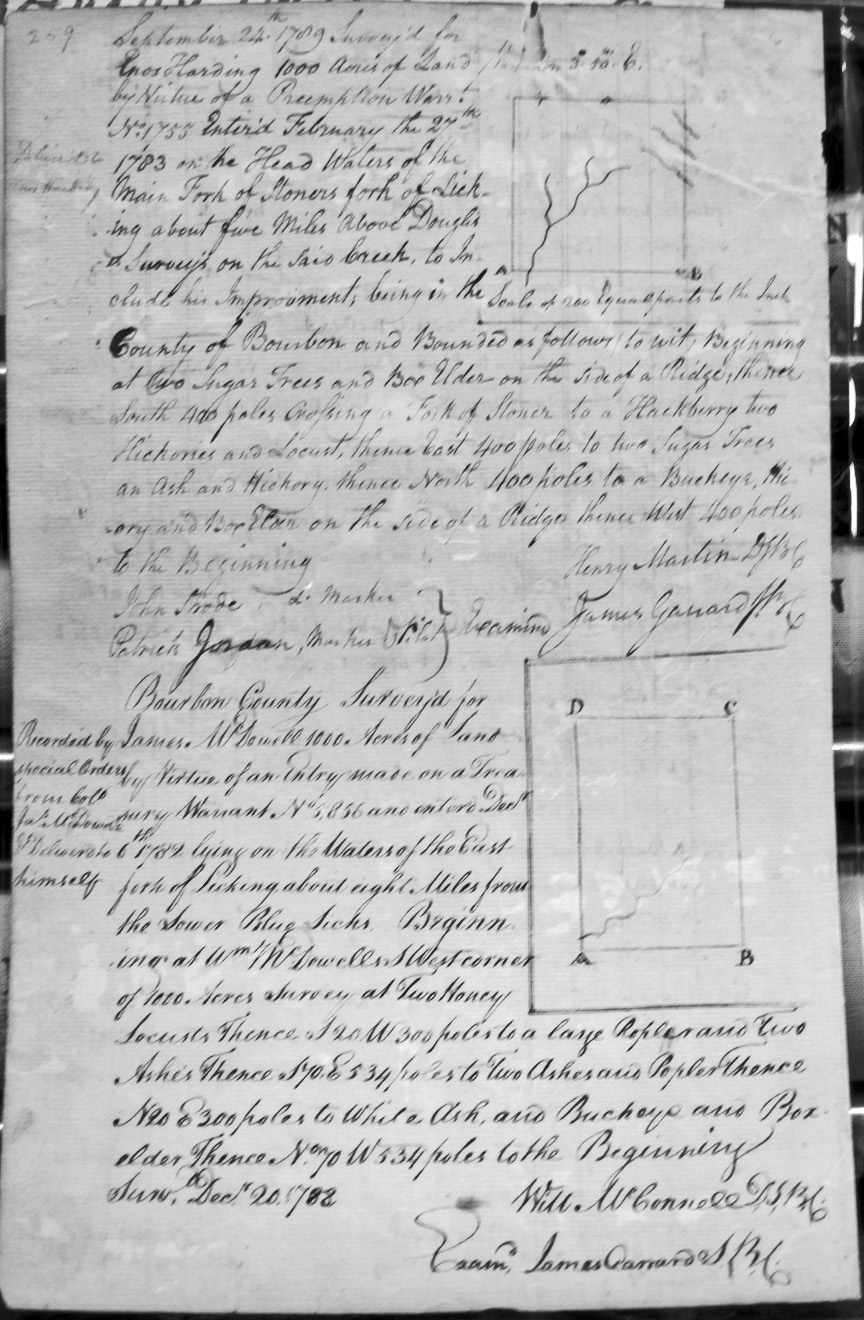 259
September 24th 1789 Survey'd for
Enos Harding 1000 Acres of Land
by Virtue of a Preemption Warrt
No 1755 Enter'd February the 27th
1783 on the Head Waters of the
Main Fork of Stoners fork of Lick-
ing about five Miles Above Douglis
Surveys on the said Creek, to In-
clude his Improvment, being in the
E.
A
B
Scale of 200 Equal parts to the Inch
County of Bourbon and Bounded as follows (to wit) Beginning
at Two Sugar Trees and Box Elder on the side of a Ridge, thence
South 400 poles Crossing a Fork of Stoner to a Hackberry two
Hickories and Locust, thence East 400 poles to two Sugar Trees
an Ash and Hickory, thence North 400 poles to a Buckeye, Hic-
ory and Box Elder on the side of a Ridge thence West 400 poles
to the Beginning
Henry Martin DSBC
John Strode, do Marker
Patrick Jordan, Marker
Examined James Garrard SBC
Bourbon County Survey'd for
James McDowell 1000 Acres of Land
by Virtue of an Entry made on a Trea-
sury Warrant No 5,856 and enterd Decr
6th 1782 lying on the Waters of the East
fork of Licking about eight Miles from
the Lower Blue Licks. Beginn-
ing at Wm McDowells S West corner
of 1000 Acres Survey at Two Honey
Locusts Thence S 20 W 300 poles to a large Popler and Two
Ashes Thence S 70 E 534 poles to Two Ashes and Popler Thence
N 20 E 300 poles to White Ash, and Buckeye and Box-
elder Thence No 70 W 534 poles to the Beginning
Survd Decr 20. 1788
Will McConnell D.S.B.C.
Examd James Garrard S.B.C.
Recorded by
special Orders
from Colo
Jas McDowell
& Deliverd to
himself
D
C
A
B